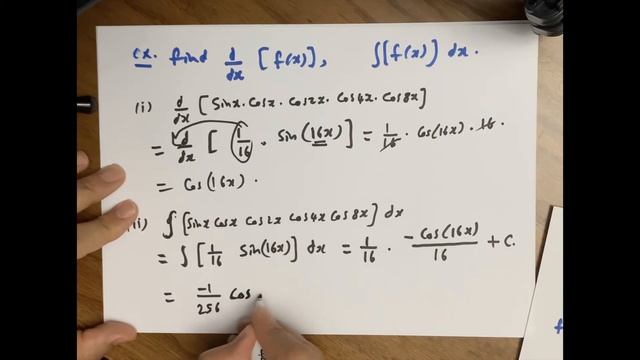 ex. find d/dx [f(x)], ∫[f(x)] dx.
(i) d/dx [sinx · cosx · cos2x · cos4x · cos8x]
= d/dx [1/16 · sin(16x)] = 1/16 · cos(16x) · 16 ·
= cos(16x) ·
(ii) ∫[sinx cosx cos2x cos4x cos8x] dx
= ∫[1/16 sin(16x)] dx = 1/16 · -cos(16x)/16 + C.
= -1/256 cos